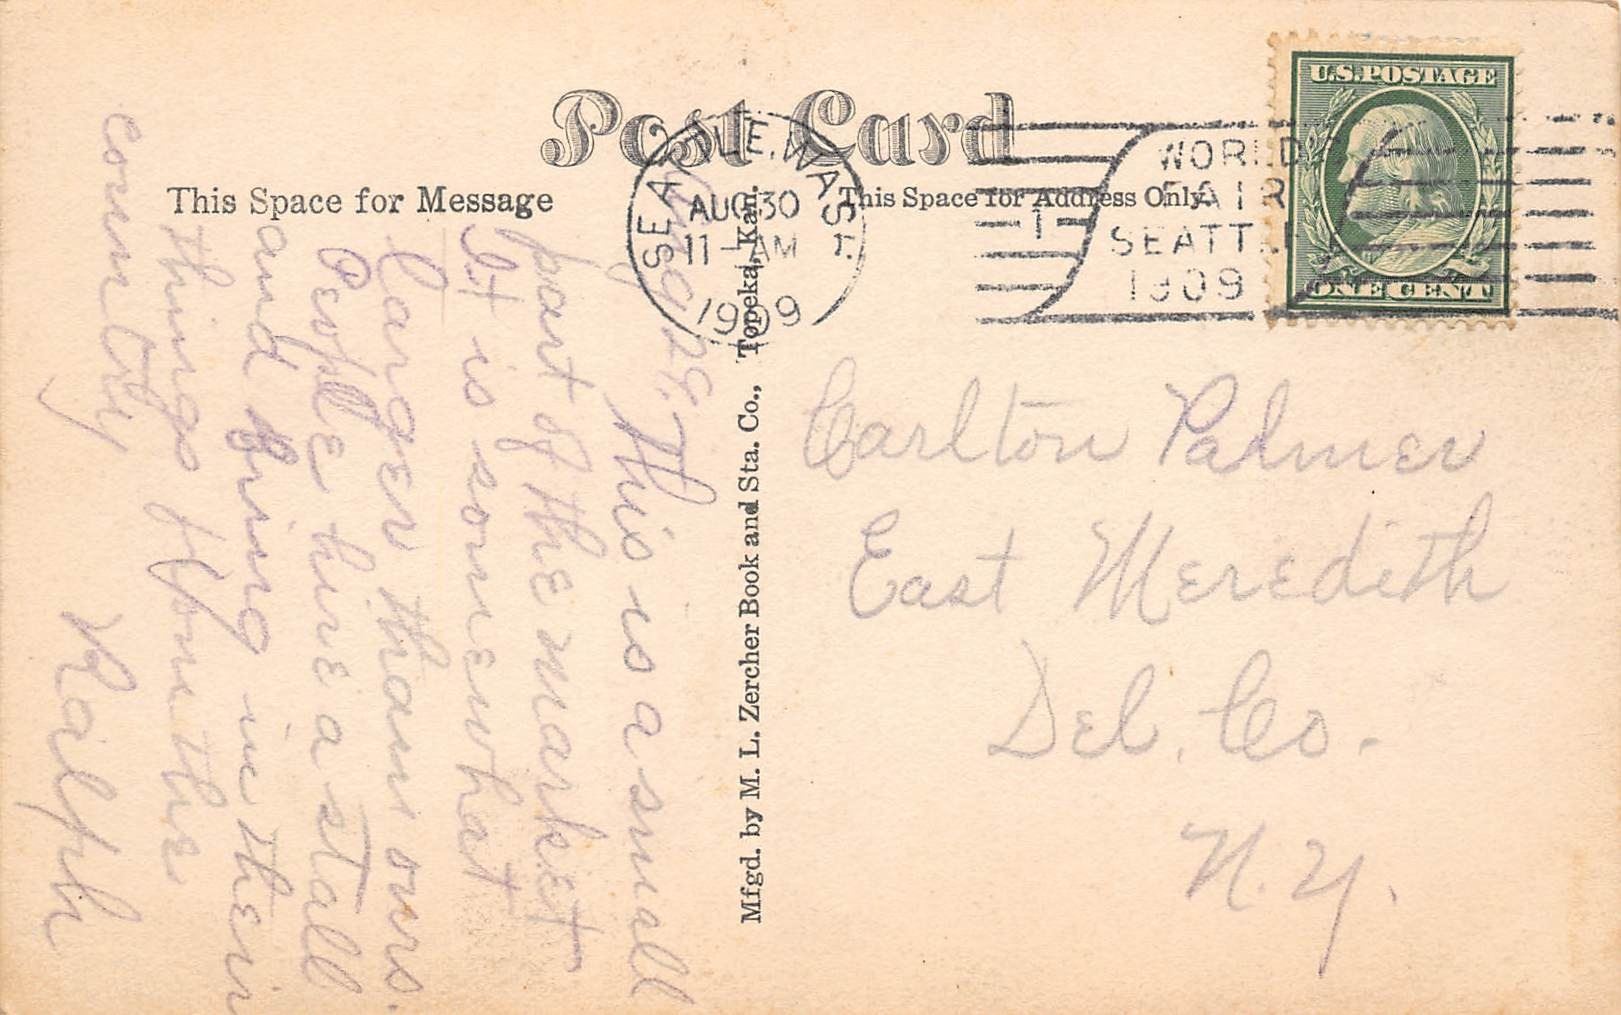 Post Card
This Space for Message
This Space for Address Only.
SEATTLE, WASH.
AUG 30
11-AM
1909
1
WORLD'S
FAIR
SEATTLE
1909
U.S. POSTAGE
ONE CENT
Mfgd. by M. L. Zercher Book and Sta. Co., Topeka, Kan.
Aug 29,
This is a small
part of the market
It is somewhat
larger than ours.
People hire a stall
and bring in their
things from the
country,
Ralph
Carlton Palmer
East Meredith
Del. Co.
N.Y.